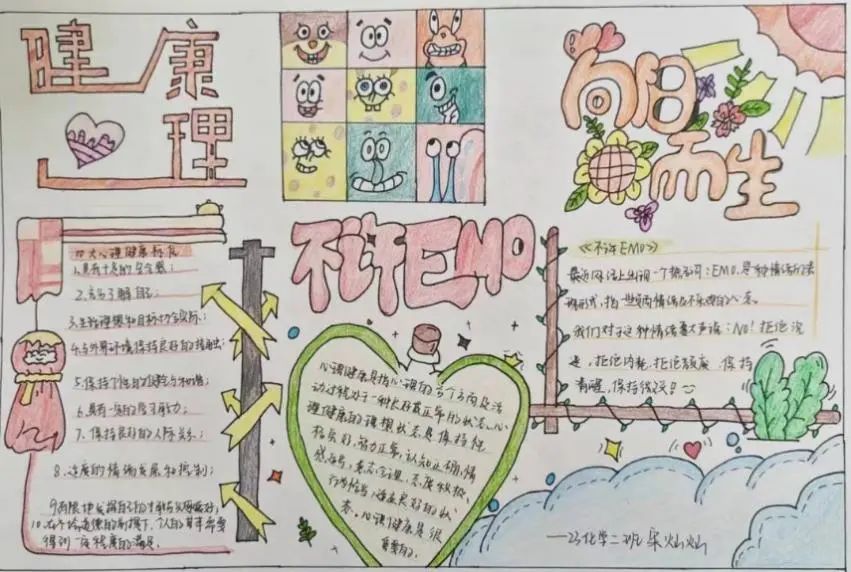 健康
心理
不许EMO
向阳而生
四大心理健康标准
1.具有十足的安全感;
2.充分了解自己;
3.生活理想和目标切合实际;
4.与外界环境保持良好的接触;
5.保持个性的健全与和谐;
6.具有一定的学习能力;
7.保持良好的人际关系;
8.适度的情绪发展和控制;
9.有限地发挥自己的才能与兴趣爱好;
10.在不给道德的前提下,个人的基本需要
得到一定程度的满足.
心理健康是指心理的各个方面及活
动过程处于一种良好或正常的状态.心
理健康的理想状态是保持性
格良好,智力正常,认知正确,情
感适当,意志合理,态度积极,
行为恰当,适应良好的状
态.心理健康是很
重要的.
《不许EMO》
最近网络上出现一个热词:EMO.是种情绪的表
现形式,指一些负面情绪和不乐观的心态.
我们对于这种情绪要大声说:NO!拒绝沉
迷,拒绝内耗,拒绝颓废,保持
清醒,保持微笑!
——23化学二班 梁灿灿